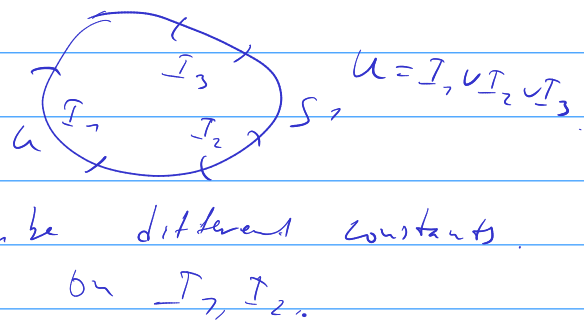 I_3
U = I_1 ∪ I_2 ∪ I_3
I_1 I_2 S_1
U
be different constants.
on I_1, I_2.